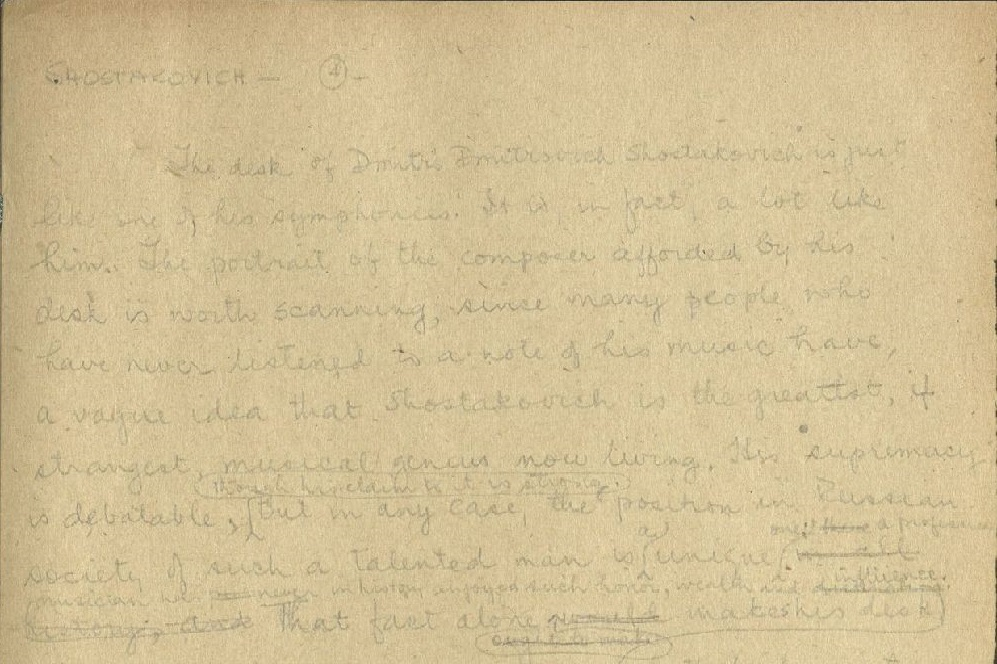 SHOSTAKOVICH — 4 —
The desk of Dmitri Dmitrovich Shostakovich is just
like one of his symphonies. It is, in fact, a lot like
him. The portrait of the composer afforded by his
desk is worth scanning, since many people who
have never listened to a note of his music have,
a vague idea that Shostakovich is the greatest, if
strangest, musical genius now living. His supremacy
though his claim to it is strong.
is debatable, But in any case, the position in Russian
a one! a professional
society of such a talented man is unique in all
musician has never in history enjoyed such honor, wealth and influence.
history, and That fact alone would makes his desk
ought to make